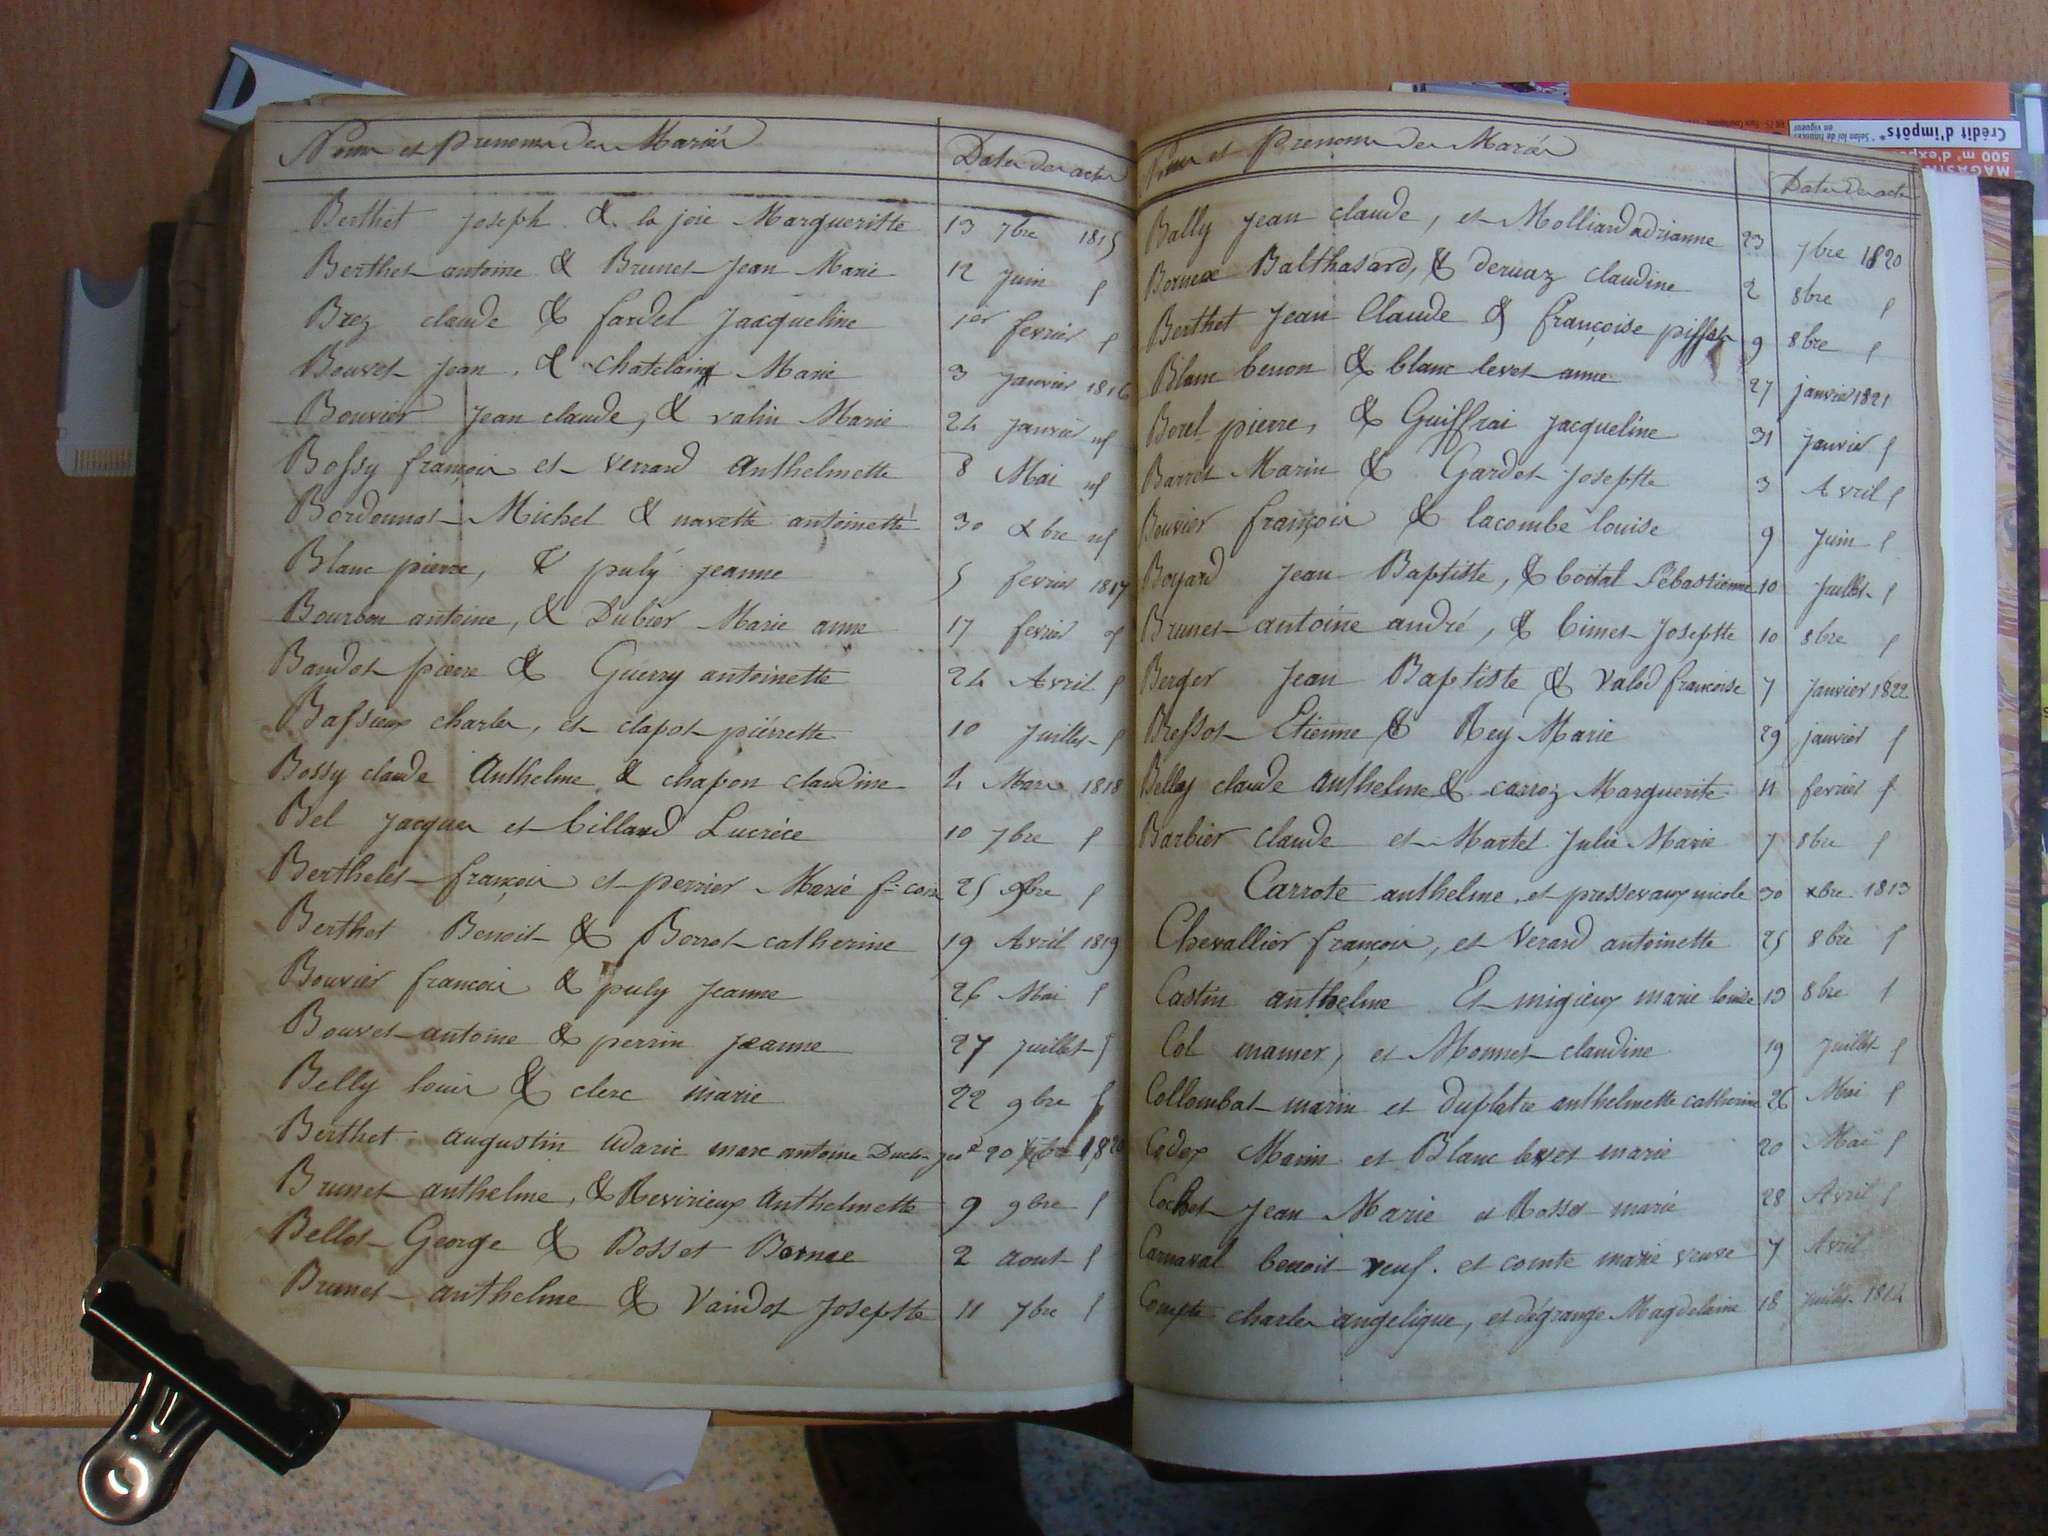 Noms et Prenoms des Mariés Dates des actes
Berthet joseph & la joie Margueritte 13 7bre 1815
Berthet antoine & Brunet Jean Marie 12 juin
Brez claude & fardel Jacqueline 1er fevrier
Bouvet jean, & chatelain Marie 3 janvier 1816
Bouvier jean claude, & valin Marie 24 janvier
Bossy françois et verrard Anthelmette 8 Mai
Bordonnot Michel & navette antoinette 30 xbre
Blanc pierre, & puly jeanne 5 fevrier 1817
Bourbon antoine, & Dubier Marie anne 17 fevrier
Baudot pierre & Guerry antoinette 24 Avril
Bassieux charles, et clapot pierrette 10 juillet
Bossy claude Anthelme & chapon claudine 4 Mars 1818
Bel jacques et billard Lucréce 10 7bre
Berthelet françois et perrier Marie 25 9bre
Berthet Benoit & Borrot catherine 19 Avril 1819
Bouvier francois & puly Jeanne 26 Mai
Bouvet antoine & perrin jeanne 27 juillet
Belly louis & clerc marie 22 9bre
Berthet augustin marc antoine 20 1820
Brunet anthelme, & Revirieux Anthelmette 9 9bre
Bellot George & Bosset 2 aout
Brunet anthelme & Vaudot Josephte 11 7bre
Noms et Prenoms des Mariés Dates des actes
Bally jean claude, et Molliard adrianne 23 7bre 1820
Borneae Balthasard, & deruaz claudine 2 8bre
Berthet Jean Claude & françoise 9 8bre
Blanc benon & blanc levet anne 27 janvier 1821
Borel pierre, & Guiffrai jacqueline 31 janvier
Barret Marin & Gardet Josephte 3 Avril
Bouvier françois & lacombe louise 9 Juin
Boyard Jean Baptiste, & boital Sébastienne 10 Juillet
Brunet antoine andré, & bimet Josephte 10 8bre
Berger Jean Baptiste & valod francoise 7 janvier 1822
Bressot Etienne & Rey Marie 29 janvier
Belley claude anthelme & carroz Marguerite 11 fevrier
Barbier claude et Martel Julie Marie 7 8bre
Carrote anthelme, et pressevaux nicole 30 xbre 1813
Chevallier françois, et Verard antoinette 25 8bre
Castin anthelme Et migieux marie louise 13 8bre
Col mamer, et Monnet claudine 19 juillet
Collombat marin et duplatre anthelmette catherine 26 Mai
Codex Marin et Blanc levet marie 20 Mai
Cochet Jean Marie et Rosset marie 28 Avril
Carnaval benoit veuf. et comte marie veuve 7 Avril
Compte charles angelique, et dégrange Magdelaine 18 juillet 1814
Crédit d'impôts*
* Selon loi de finances
en vigueur
MAGASIN
500 m² d'expo